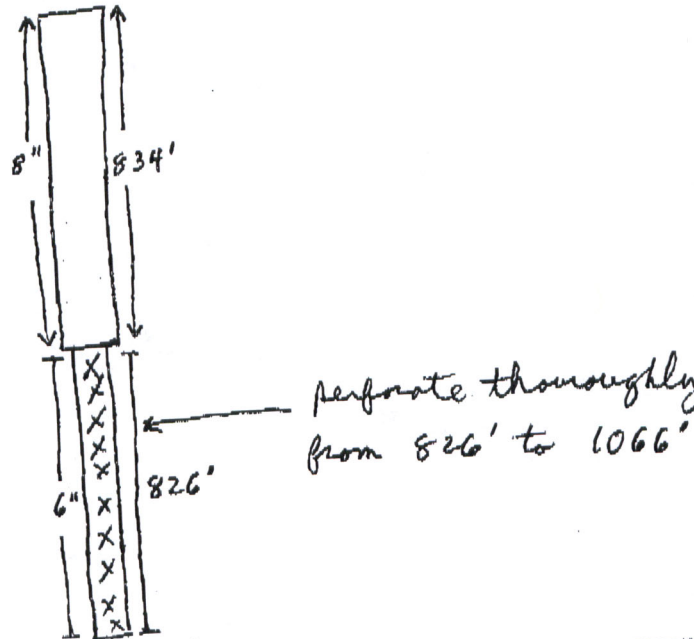 8" 834'
perforate thoroughly
from 826' to 1066'
6" 826'